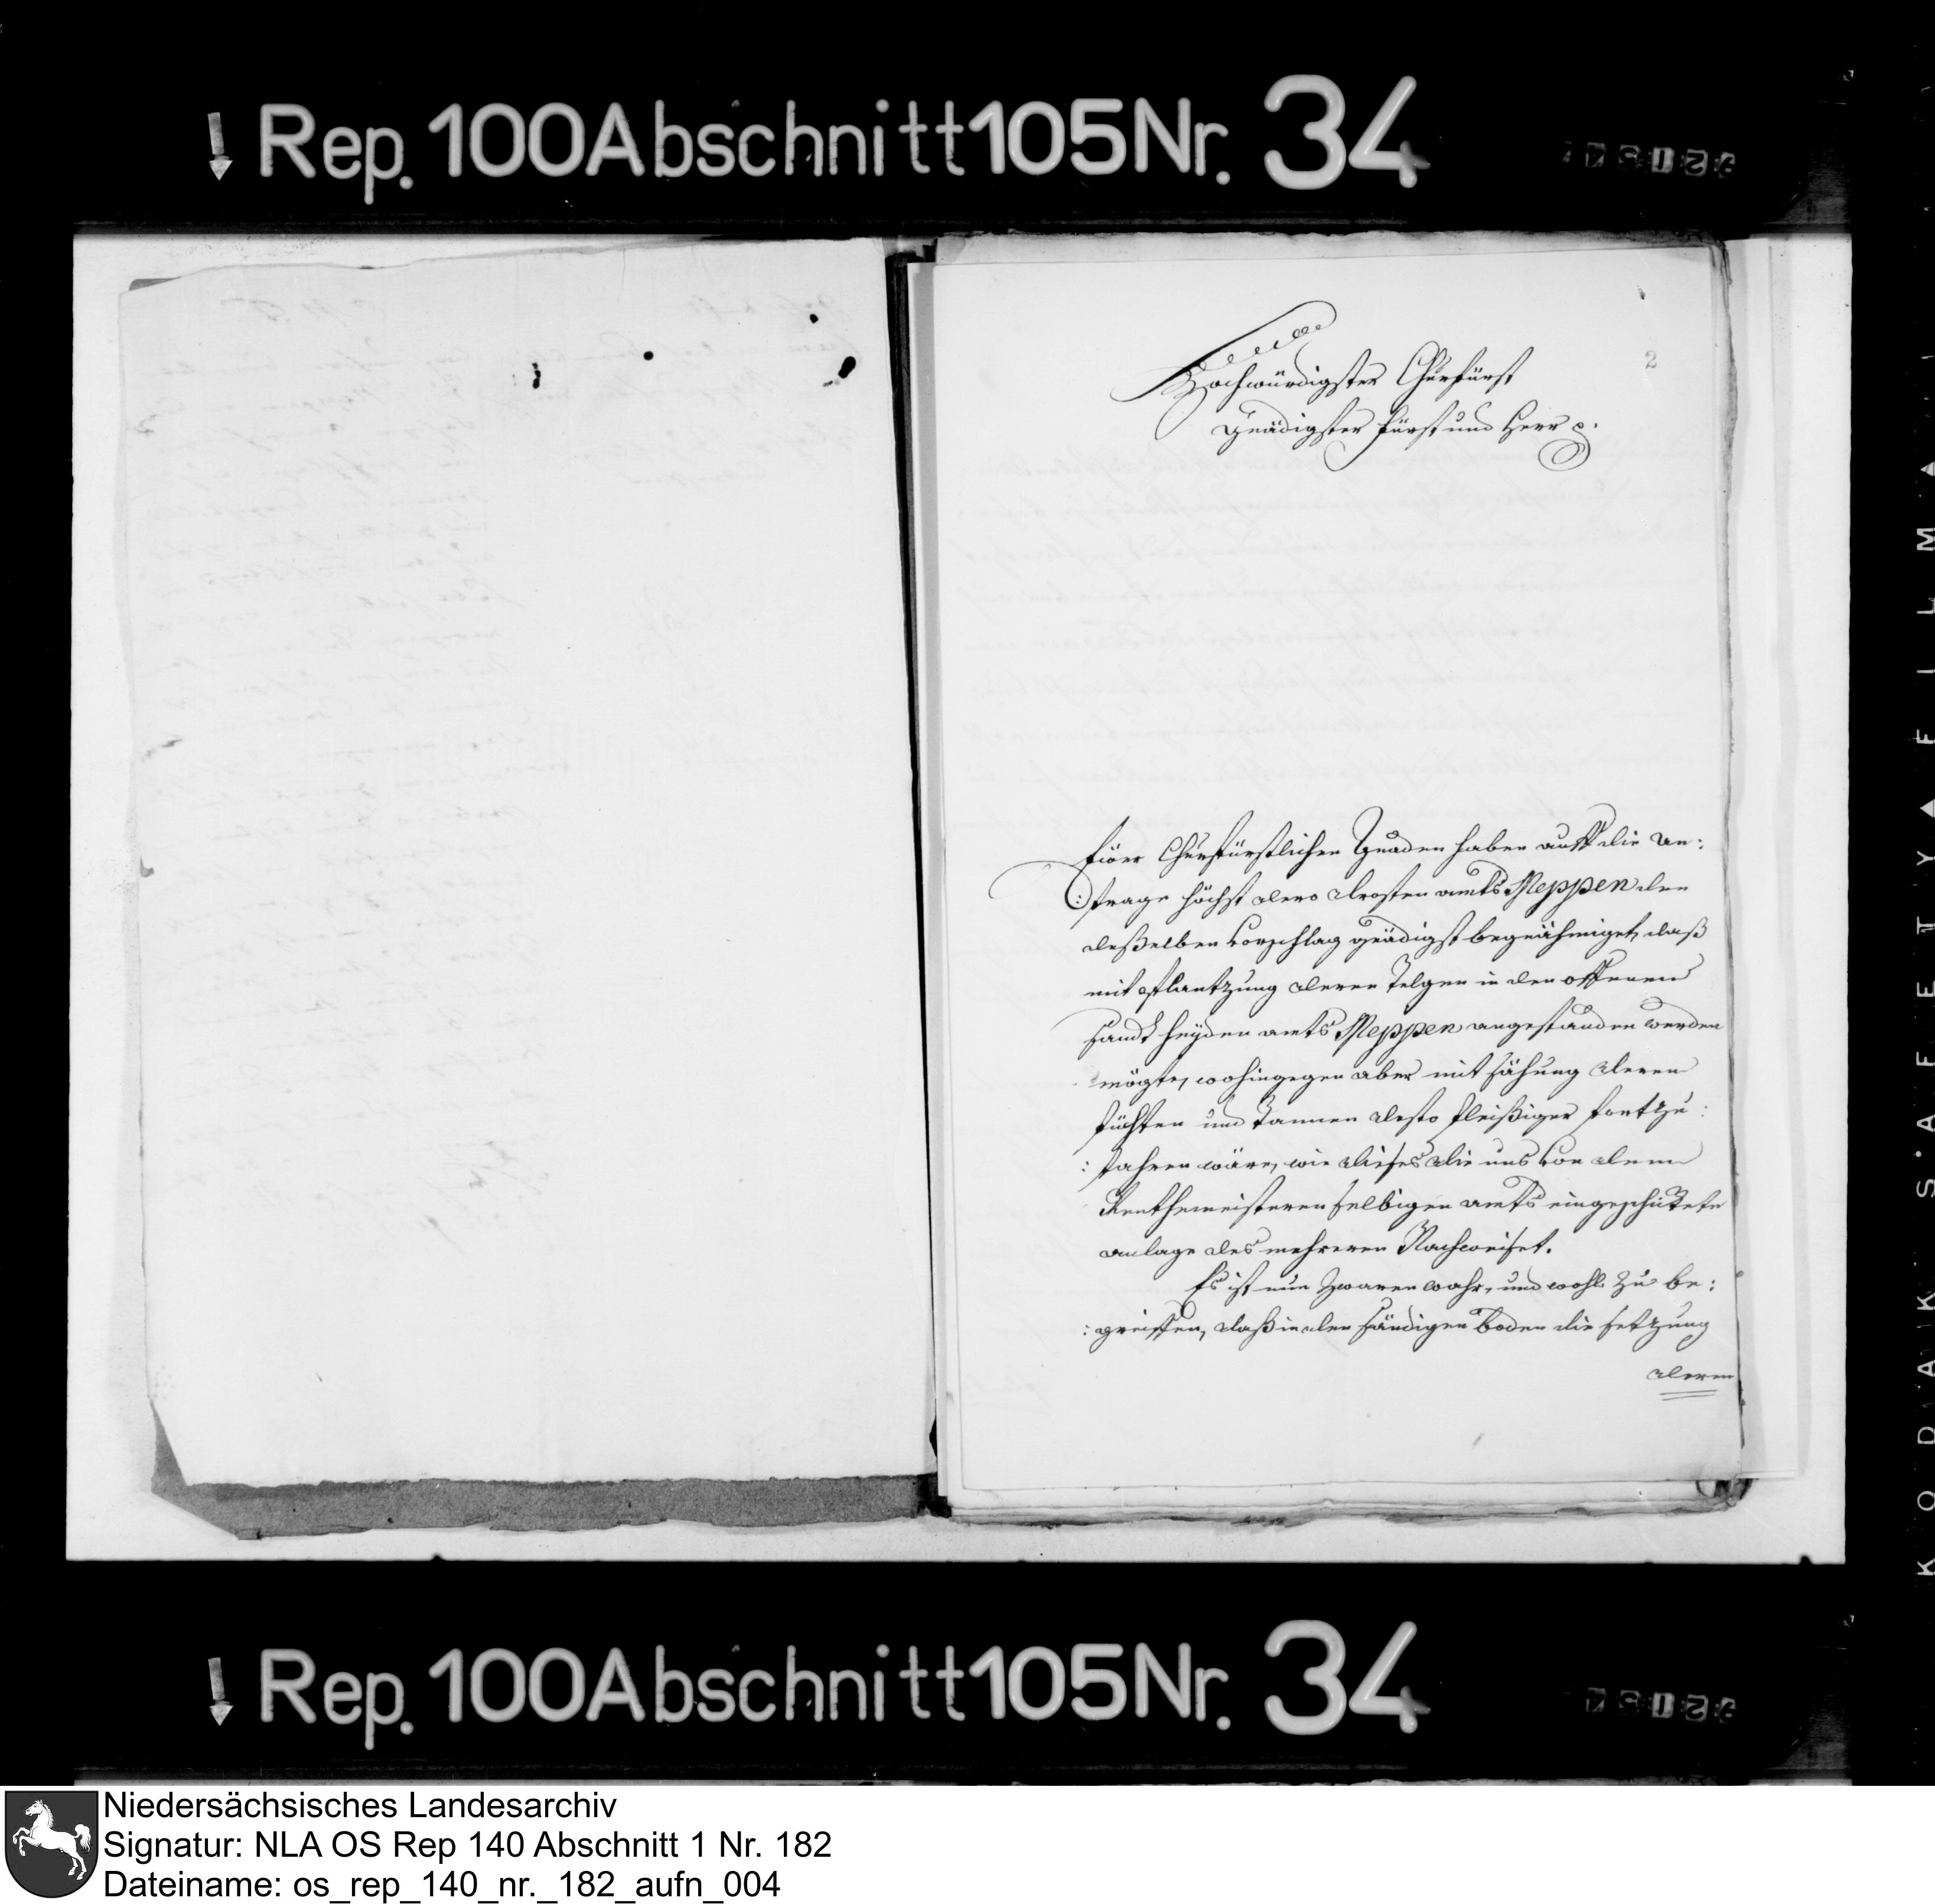 Rep. 100 Abschnitt 105 Nr. 34
2
Hochwürdigster Churfürst
gnädigster Fürst und Herr p.
Eüer Churfürstlichen Gnaden haben auff die an:
:frage höchst dero Drosten amts Meppen den
deßelben vorschlag gnädigst begnähmiget, daß
mit pflantzung deren Telgen in den offenen
sandt heyden amts Meppen angestanden werden
mögte, wohingegen aber mit sähung deren
füchten und Tannen desto fleißiger fortzu:
:fahren wäre, wie dieses die uns von dem
Renthemeisteren selbigen amts eingeschickte
anlage des mehreren Nachweiset.
Es ist nun zwaren wahr, und wohl zu be:
:greiffen, daß in den sändigen boden die setzung
deren
Rep. 100 Abschnitt 105 Nr. 34
KODAK SAFETY FILM
Niedersächsisches Landesarchiv
Signatur: NLA OS Rep 140 Abschnitt 1 Nr. 182
Dateiname: os_rep_140_nr._182_aufn_004